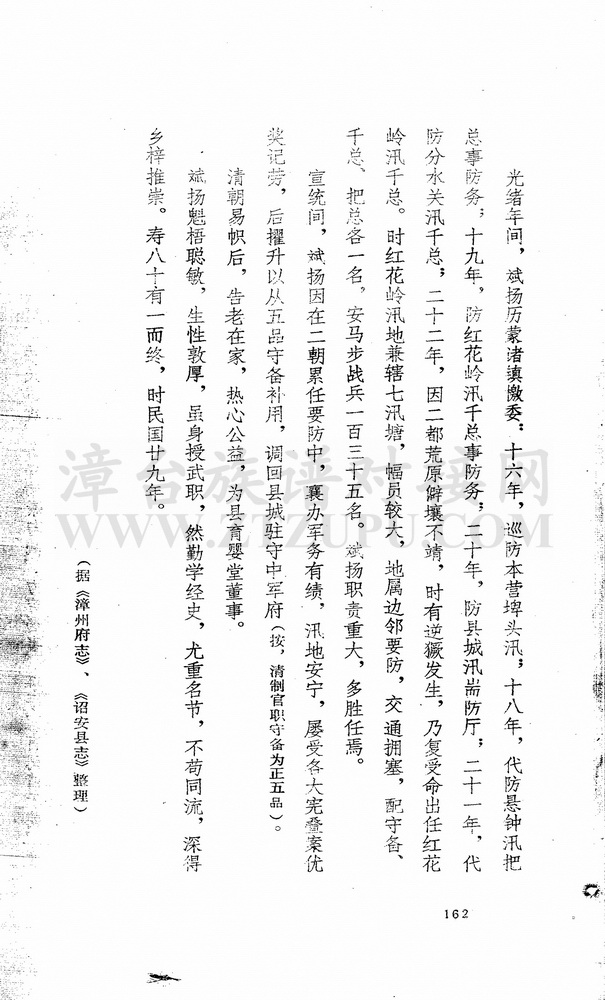 光绪年间，斌扬历蒙诸镇檄委：十六年，巡防本营埤头汛；十八年，代防悬钟汛把
总事防务；十九年，防红花岭汛千总事防务；二十年，防县城汛耑防厅；二十一年，代
防分水关汛千总；二十二年，因二都荒原僻壤不靖，时有逆獗发生，乃复受命出任红花
岭汛千总。时红花岭汛地兼辖七汛塘，幅员较大，地属边邻要防，交通拥塞，配守备、
千总、把总各一名，安马步战兵一百三十五名。斌扬职责重大，多胜任焉。
宣统间，斌扬因在二朝累任要防中，襄办军务有绩，汛地安宁，屡受各大宪叠案优
奖记劳，后擢升以从五品守备补用，调回县城驻守中军府（按，清制官职守备为正五品）。
清朝易帜后，告老在家，热心公益，为县育婴堂董事。
斌扬魁梧聪敏，生性敦厚，虽身授武职，然勤学经史，尤重名节，不苟同流，深得
乡梓推崇。寿八十有一而终，时民国廿九年。
（据《漳州府志》、《诏安县志》整理）
162
漳台族谱对接网
WWW.ZTZUPU.COM